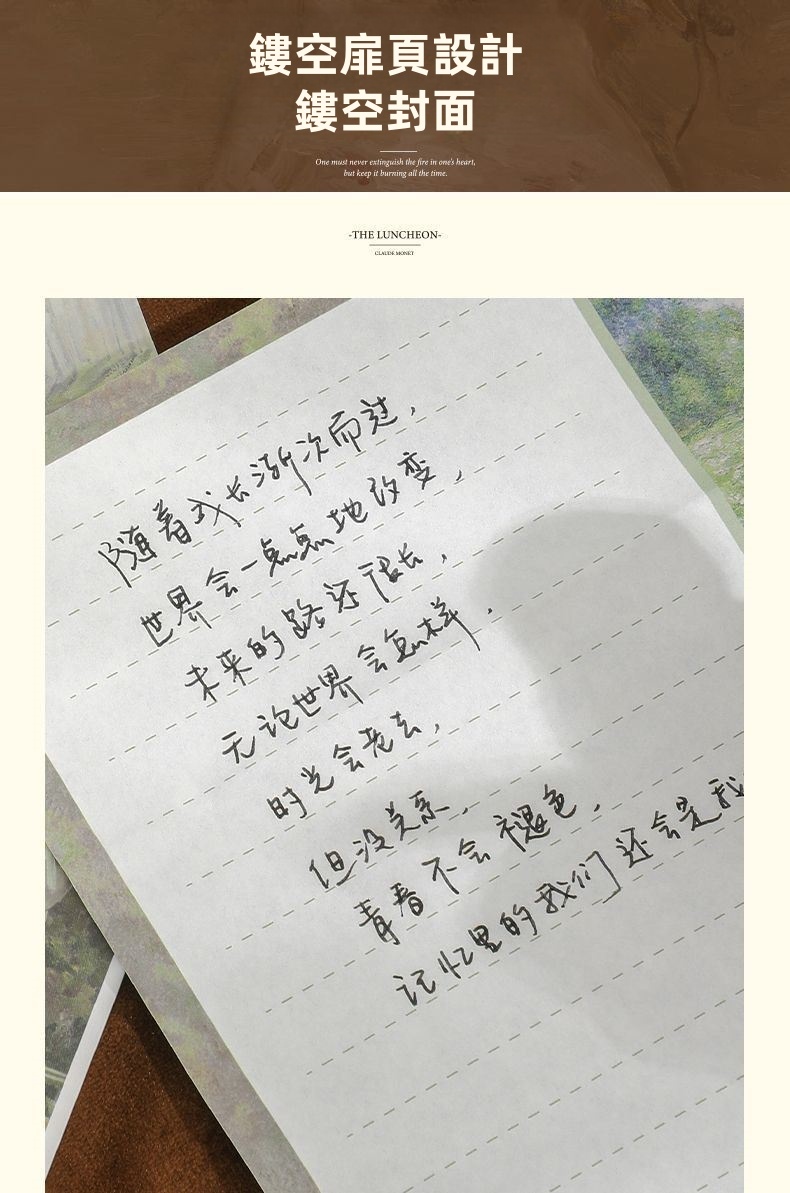 鏤空扉頁設計
鏤空封面
One must never extinguish the fire in one's heart,
but keep it burning all the time.
-THE LUNCHEON-
CLAUDE MONET
随着成长渐次而过，
世界会一点点地改变，
未来的路还很长，
无论世界会怎样，
时光会老去，
但没关系，
青春不会褪色，
记忆里的我们还会是我